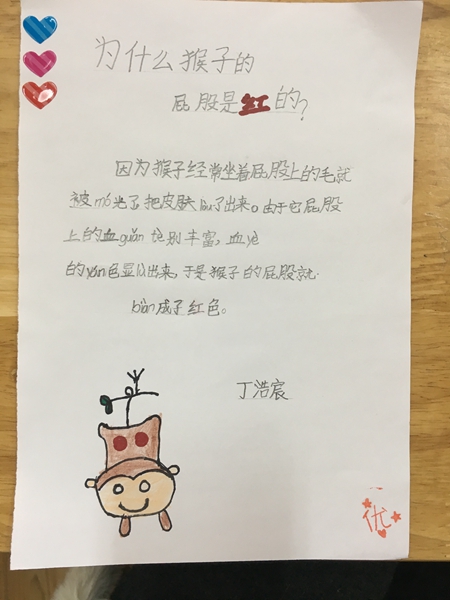 为什么猴子的
屁股是红的？
因为猴子经常坐着屁股上的毛就
被mó光了把皮肤以了出来。由于它屁股
上的血guǎn 特别丰富，血yè
的yán色显以出来，于是猴子的屁股就
biàn成了红色。
丁浩宸
优